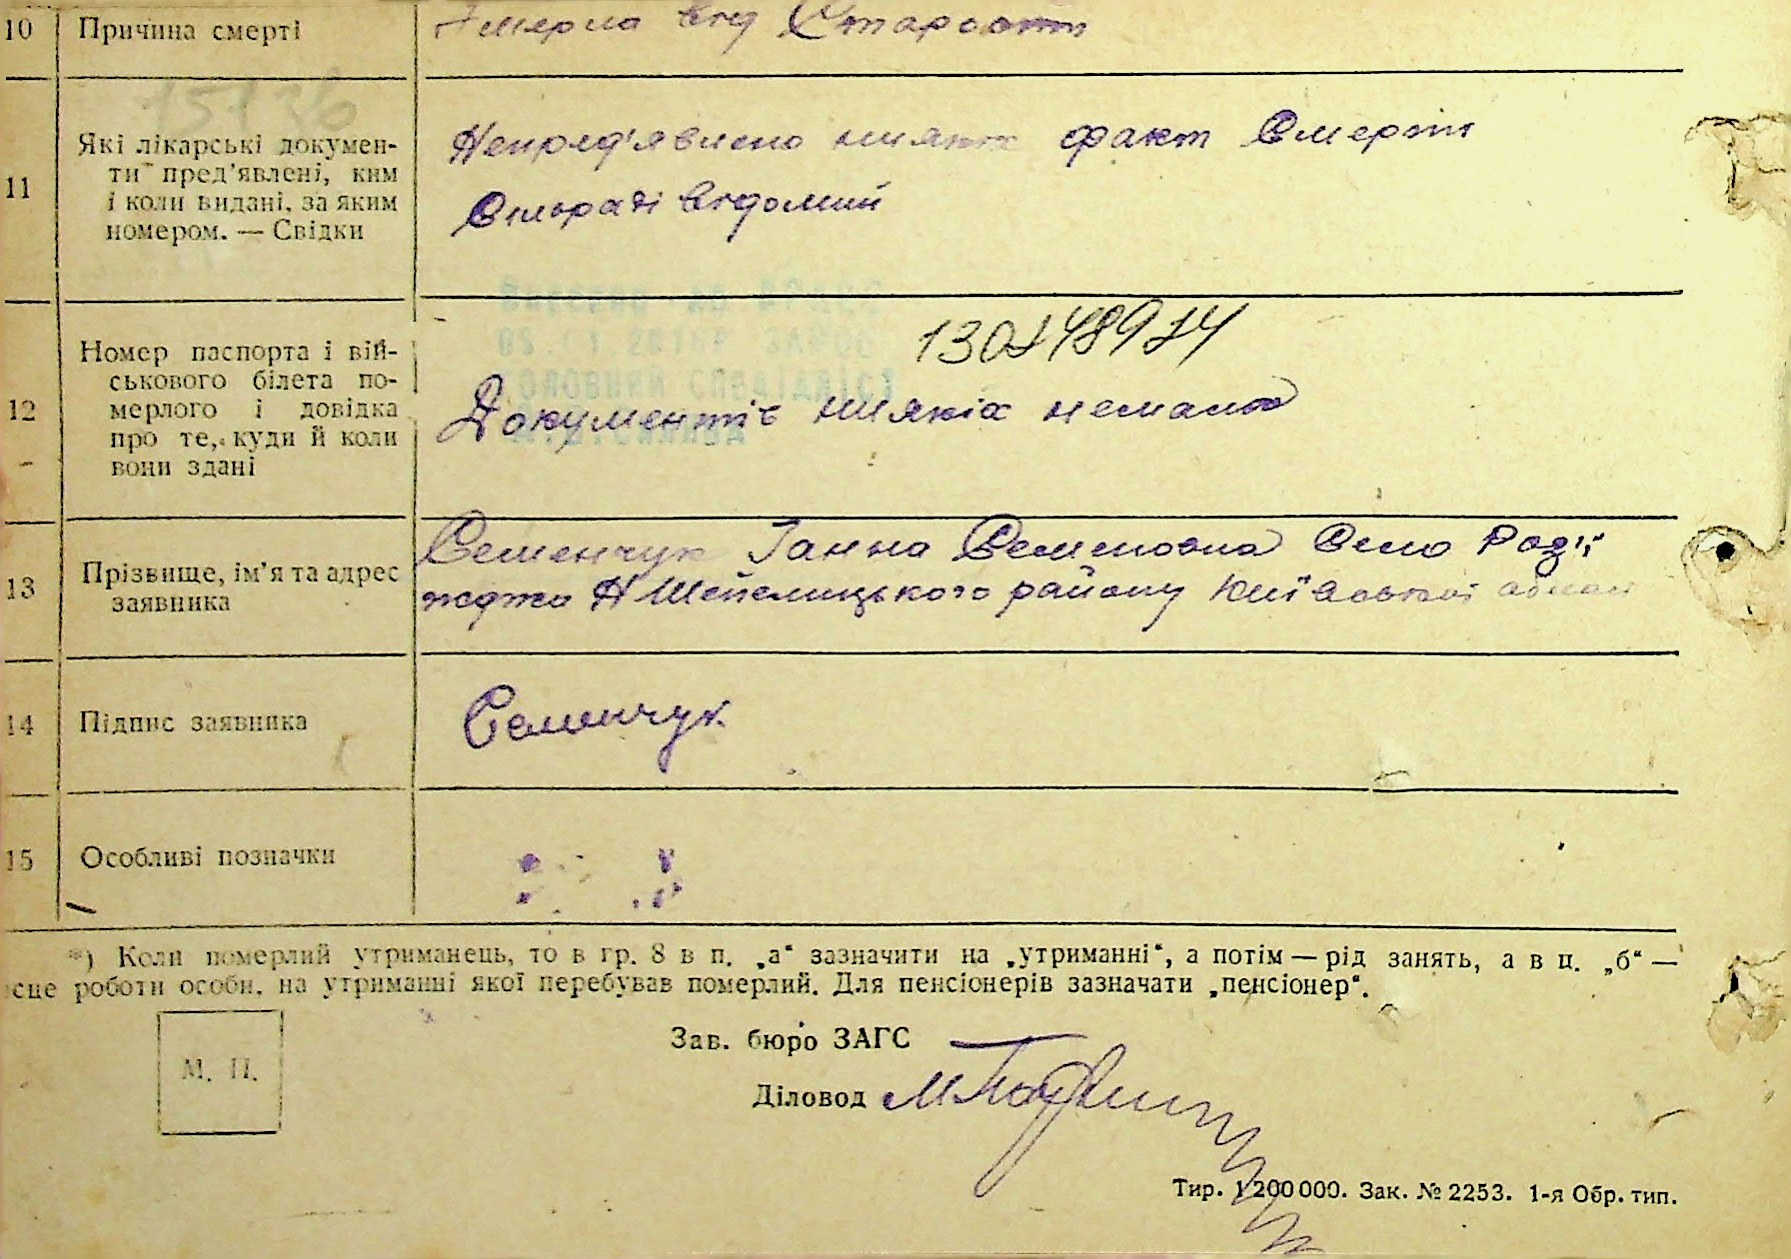 10 Причина смерті
Умерла від Старости
11 Які лікарські докумен-
ти пред’явлені, ким
і коли видані, за яким
номером. — Свідки
Непред'явлено нияких факт Смерти
Сільраді відомий
130148914
12 Номер паспорта і вій-
ськового білета по-
мерлого і довідка
про те, куди й коли
вони здані
Документів ниякіх немали
13 Прізвище, ім’я та адрес
заявника
Семенчук Ганна Семеновна Село
Н Шепелицького району Київської
14 Підпис заявника
Семенчук
15 Особливі позначки
*) Коли померлий утриманець, то в гр. 8 в п. „а“ зазначити на „утриманні“, а потім — рід занять, а в п. „б“ —
сце роботи особи, на утриманні якої перебував померлий. Для пенсіонерів зазначати „пенсіонер“.
М. П.
Зав. бюро ЗАГС
Діловод
Тир. 1 200 000. Зак. № 2253. 1-я Обр. тип.